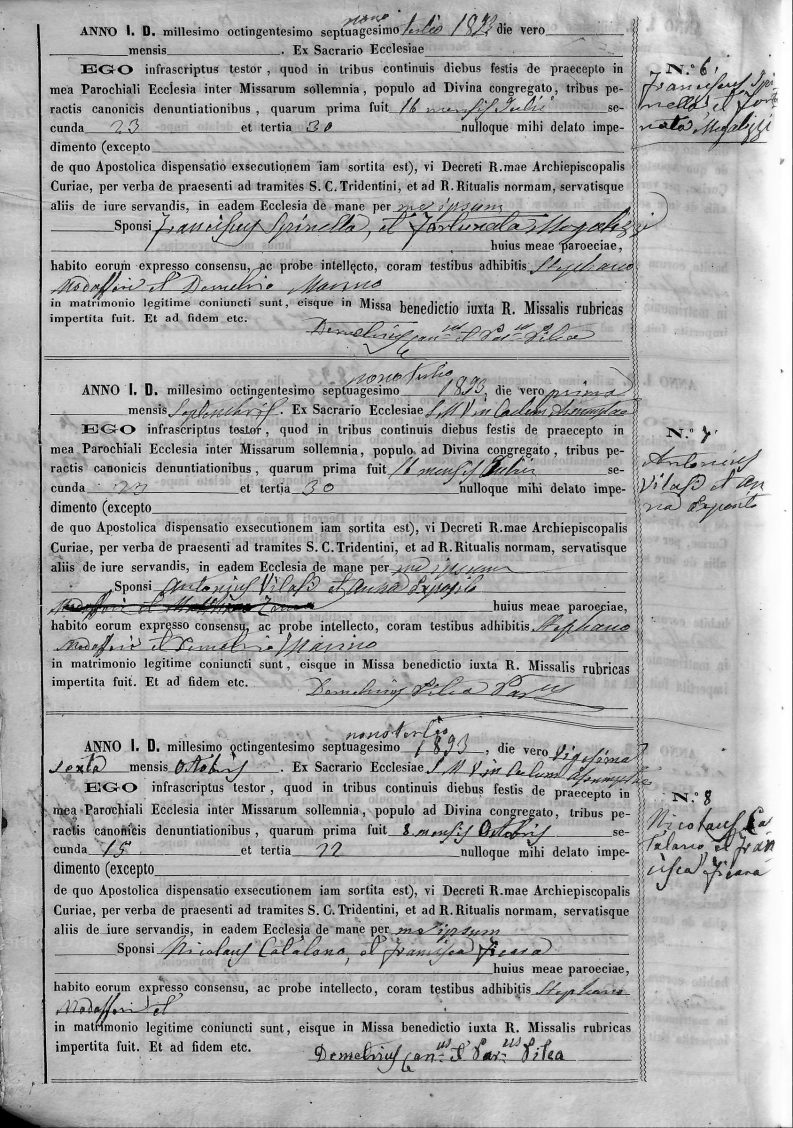 ANNO I. D. millesimo octingentesimo septuagesimo nono tertio 1893 die vero
mensis . Ex Sacrario Ecclesiae
EGO infrascriptus testor, quod in tribus continuis diebus festis de praecepto in
mea Parochiali Ecclesia inter Missarum sollemnia, populo ad Divina congregato, tribus pe-
ractis canonicis denuntiationibus, quarum prima fuit 16 mensis Julii se-
cunda 23 et tertia 30 nulloque mihi delato impe-
dimento (excepto
de quo Apostolica dispensatio exsecutionem iam sortita est), vi Decreti R.mae Archiepiscopalis
Curiae, per verba de praesenti ad tramites S. C. Tridentini, et ad R. Ritualis normam, servatisque
aliis de iure servandis, in eadem Ecclesia de mane per me ipsum
Sponsi Franciscus Spinella, et Fortunata Mogalizzi
huius meae paroeciae,
habito eorum expresso consensu, ac probe intellecto, coram testibus adhibitis Stephano
Modafferi et Demetrio Marino
in matrimonio legitime coniuncti sunt, eisque in Missa benedictio iuxta R. Missalis rubricas
impertita fuit. Et ad fidem etc.
Demetrius Can.us et Par.us Vilea
N.° 6
Franciscus Spi-
nella et Fortu-
nata Mogalizzi
ANNO I. D. millesimo octingentesimo septuagesimo nono tertio 1893, die vero prima
mensis Septembris. Ex Sacrario Ecclesiae S. M. V. in Caelum Assumptae
EGO infrascriptus testor, quod in tribus continuis diebus festis de praecepto in
mea Parochiali Ecclesia inter Missarum sollemnia, populo ad Divina congregato, tribus pe-
ractis canonicis denuntiationibus, quarum prima fuit 16 mensis Julii se-
cunda 23 et tertia 30 nulloque mihi delato impe-
dimento (excepto
de quo Apostolica dispensatio exsecutionem iam sortita est), vi Decreti R.mae Archiepiscopalis
Curiae, per verba de praesenti ad tramites S. C. Tridentini, et ad R. Ritualis normam, servatisque
aliis de iure servandis, in eadem Ecclesia de mane per me ipsum
Sponsi Antonius et Anna Esposito
huius meae paroeciae,
habito eorum expresso consensu, ac probe intellecto, coram testibus adhibitis Stephano
Modafferi et Demetrio Marino
in matrimonio legitime coniuncti sunt, eisque in Missa benedictio iuxta R. Missalis rubricas
impertita fuit. Et ad fidem etc.
Demetrius Vilea Par.us
N.° 7
Antonius
et An-
na Esposito
ANNO I. D. millesimo octingentesimo septuagesimo nono tertio 1893, die vero Vigesima
sexta mensis Octobris. Ex Sacrario Ecclesiae S. M. V. in Caelum Assumptae
EGO infrascriptus testor, quod in tribus continuis diebus festis de praecepto in
mea Parochiali Ecclesia inter Missarum sollemnia, populo ad Divina congregato, tribus pe-
ractis canonicis denuntiationibus, quarum prima fuit 8 mensis Octobris se-
cunda 15 et tertia 22 nulloque mihi delato impe-
dimento (excepto
de quo Apostolica dispensatio exsecutionem iam sortita est), vi Decreti R.mae Archiepiscopalis
Curiae, per verba de praesenti ad tramites S. C. Tridentini, et ad R. Ritualis normam, servatisque
aliis de iure servandis, in eadem Ecclesia de mane per me ipsum
Sponsi Nicolaus Catalano, et Francisca Ficara
huius meae paroeciae,
habito eorum expresso consensu, ac probe intellecto, coram testibus adhibitis Stephano
Modafferi et
in matrimonio legitime coniuncti sunt, eisque in Missa benedictio iuxta R. Missalis rubricas
impertita fuit. Et ad fidem etc.
Demetrius Can.us et Par.us Vilea
N.° 8
Nicolaus Ca-
talano et Fran-
cisca Ficara